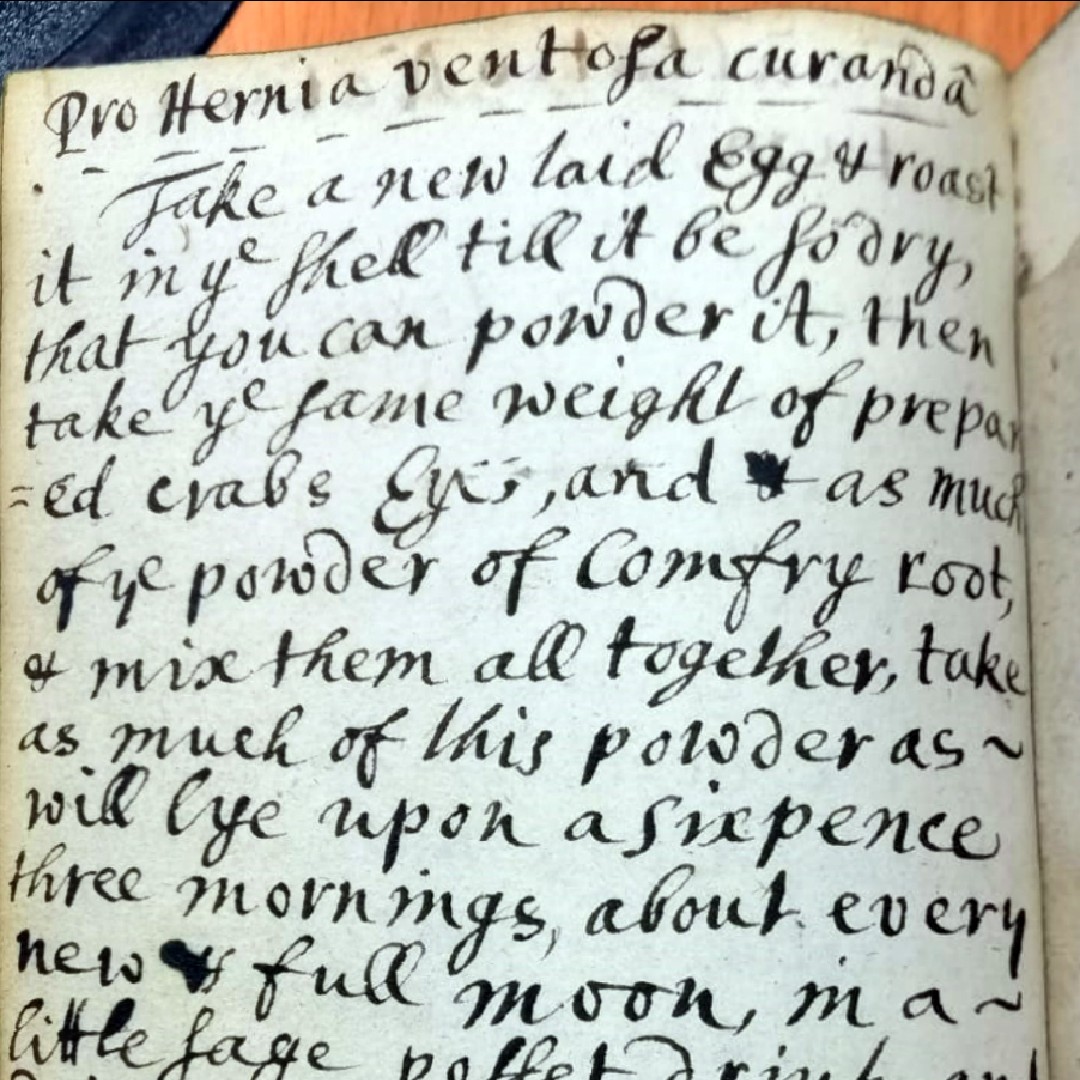 Pro Hernia ventosa curandâ
Take a new laid Egg & roast
it in ye shell till it be so dry,
that you can powder it, then
take ye same weight of prepar
=ed crabs Eyes, and & as much
of ye powder of Comfry root,
& mix them all together, take
as much of this powder as ~
will lye upon a sixpence
three mornings, about every
new & full moon, in a ~
little sage posset drink and